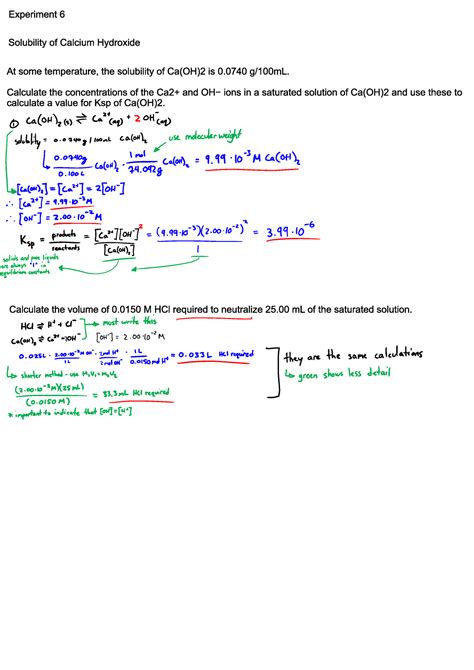 Experiment 6
Solubility of Calcium Hydroxide
At some temperature, the solubility of Ca(OH)2 is 0.0740 g/100mL.
Calculate the concentrations of the Ca2+ and OH− ions in a saturated solution of Ca(OH)2 and use these to
calculate a value for Ksp of Ca(OH)2.
① Ca(OH)₂(s) ⇌ Ca²⁺(aq) + 2 OH⁻(aq)
solubility = 0.0740g/100mL Ca(OH)₂ use molecular weight
0.0740g / 0.100L Ca(OH)₂ · 1 mol / 74.092g Ca(OH)₂ = 9.99·10⁻³ M Ca(OH)₂
[Ca(OH)₂] = [Ca²⁺] = 2[OH⁻]
∴ [Ca²⁺] = 9.99·10⁻³M
∴ [OH⁻] = 2.00·10⁻²M
Ksp = products / reactants = [Ca²⁺][OH⁻]² / [Ca(OH)₂] = (9.99·10⁻³)(2.00·10⁻²)² / 1 = 3.99·10⁻⁶
solids and pure liquids
are always "1" in
equilibrium constants
Calculate the volume of 0.0150 M HCl required to neutralize 25.00 mL of the saturated solution.
HCl ⇌ H⁺ + Cl⁻ → must write this
Ca(OH)₂ ⇌ Ca²⁺ + 2OH⁻ [OH⁻] = 2.00·10⁻²M
0.025L · 2.00·10⁻²M OH⁻ / 1L · 2mol H⁺ / 2mol OH⁻ · 1L / 0.0150mol H⁺ = 0.033L HCl required
they are the same calculations
↳ green shows less detail
↳ shorter method - use M₁V₁ = M₂V₂
(2.00·10⁻²M)(25mL) / (0.0150M) = 33.3mL HCl required
* important to indicate that [OH⁻]=[H⁺]